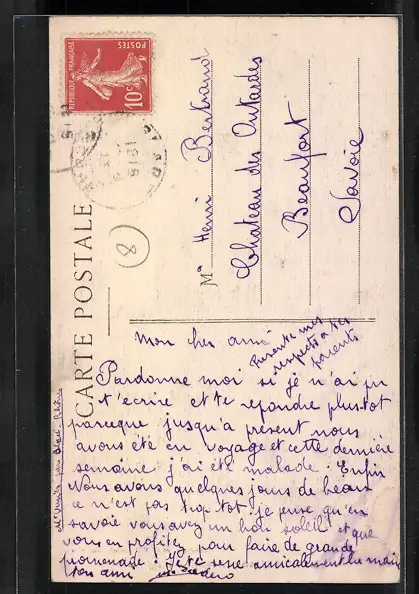 REPUBLIQUE FRANÇAISE
POSTES
10c
CARTE POSTALE
8
Mr Henri Bertrand
Chateau des Outardes
Beaufort
Savoie
Mon cher ami
Presente mes
respects a tes
parents
Pardonne moi si je n'ai pu
t'écrire et te repondre plus tot
parceque jusqu'a présent nous
avons été en voyage et cette dernière
semaine j'ai été malade. Enfin
Nous avons quelques jours de beau
ce n'est pas trop tot je pense qu'en
savoie vous avez un beau soleil et que
vous en profitez pour faire de grande
promenade. Je te serre amicalement la main
ton ami